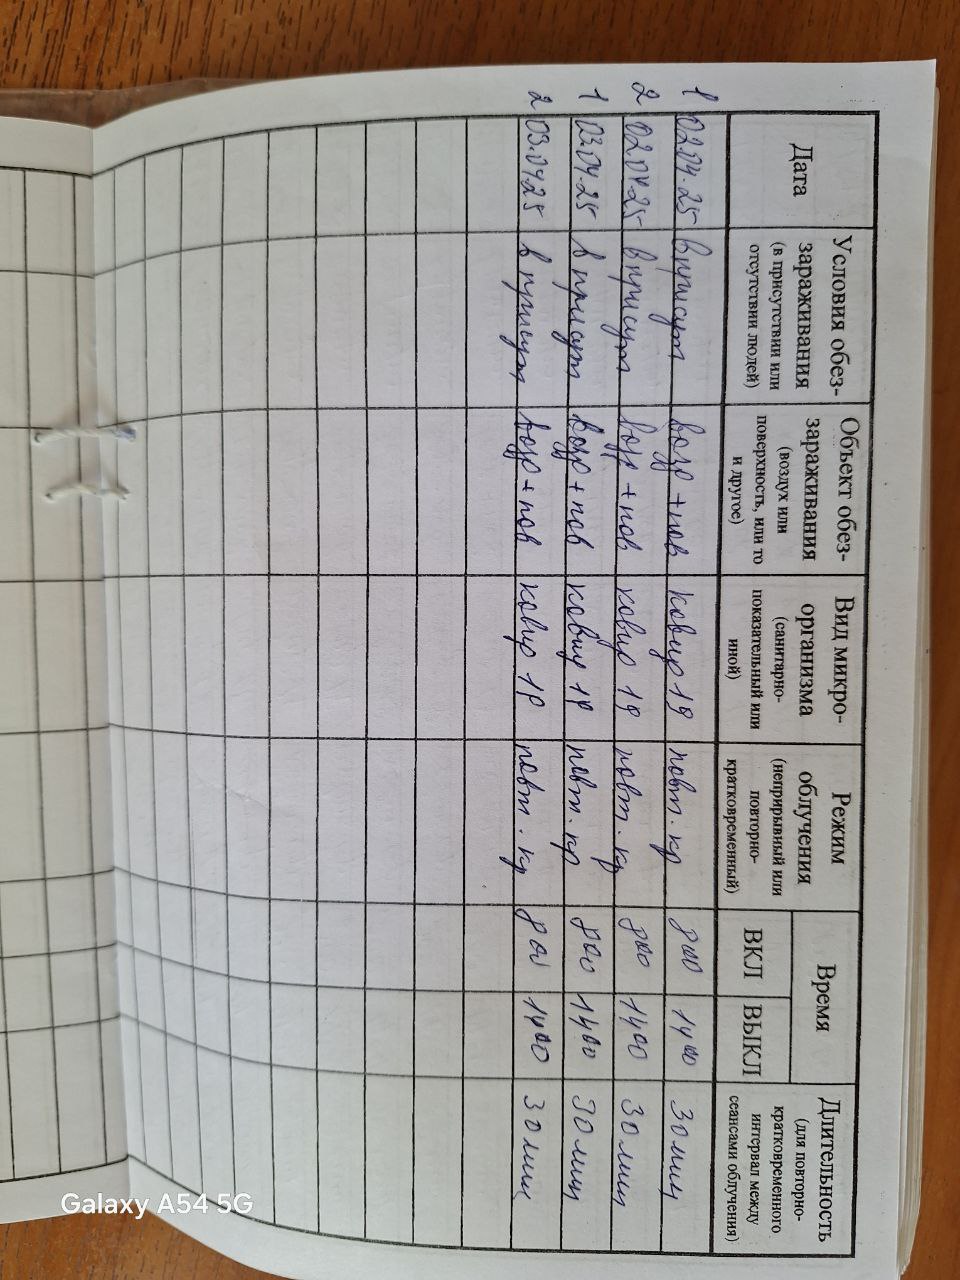 Дата
Условия обез-
зараживания
(в присутствии или
отсутствии людей)
Объект обез-
зараживания
(воздух или
поверхность, или то
и другое)
Вид микро-
организма
(санитарно-
показательный или
иной)
Режим
облучения
(неприрывный или
повторно-
кратковременный)
Время
ВКЛ
ВЫКЛ
Длительность
(для повторно-
кратковременного
интервал между
сеансами облучения)
1 02.04.25 в присут возд + пов повт. кр 800 1400 30 мин
2 02.04.25 в присут возд + пов повт. кр 800 1400 30 мин
1 03.04.25 в присут возд + пов повт. кр 800 1400 30 мин
2 03.04.25 в присут возд + пов повт. кр 800 1400 30 мин
Galaxy A54 5G